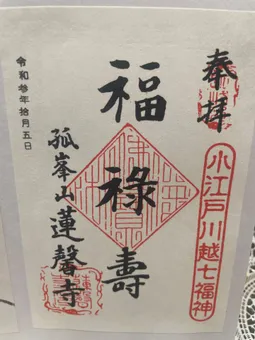 奉拝
小江戸川越七福神
福禄壽
孤峯山蓮馨寺
令和参年拾月五日